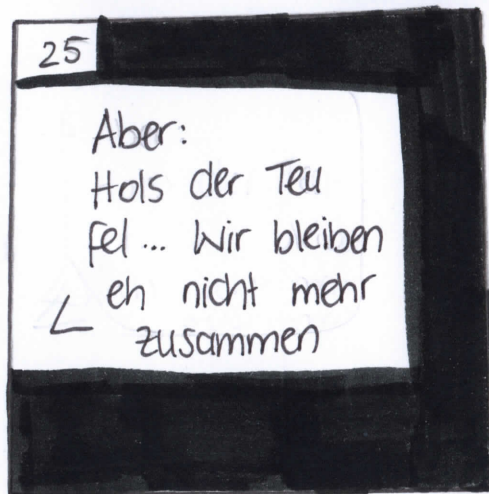 25
Aber:
Hols der Teu
fel... Wir bleiben
eh nicht mehr
zusammen